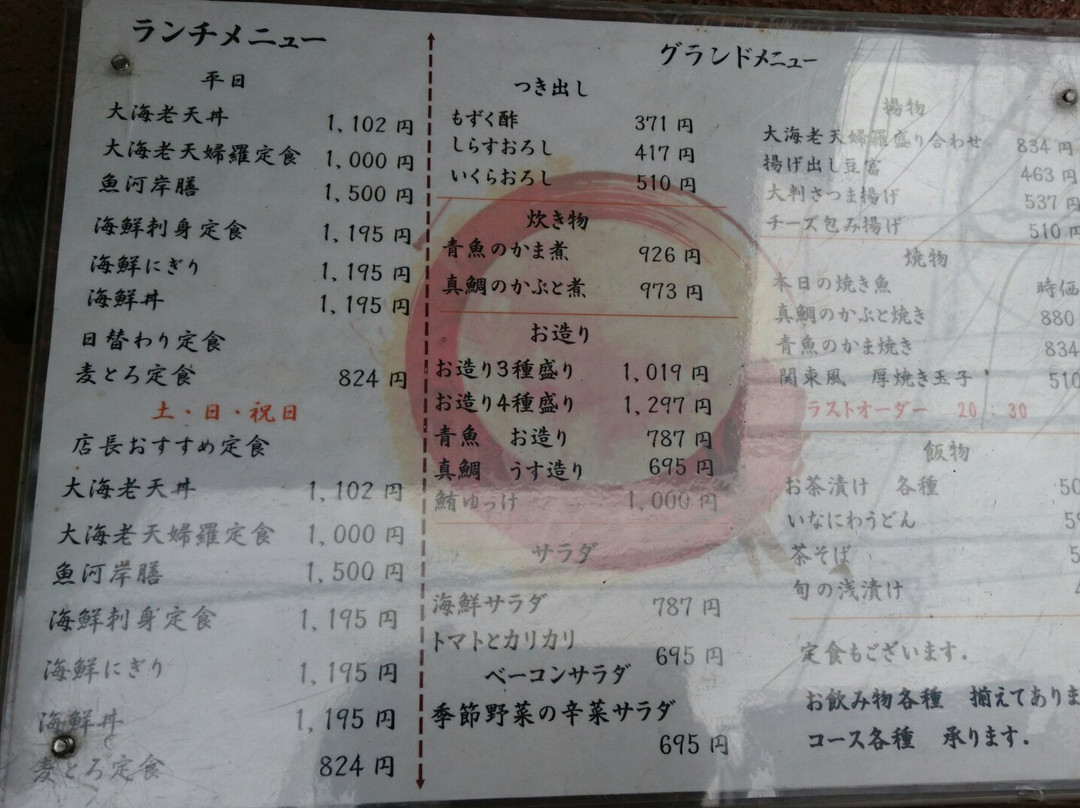 ランチメニュー
平日
大海老天丼 1,102円
大海老天婦羅定食 1,000円
魚河岸膳 1,500円
海鮮刺身定食 1,195円
海鮮にぎり 1,195円
海鮮丼 1,195円
日替わり定食
麦とろ定食 824円
土・日・祝日
店長おすすめ定食
大海老天丼 1,102円
大海老天婦羅定食 1,000円
魚河岸膳 1,500円
海鮮刺身定食 1,195円
海鮮にぎり 1,195円
海鮮丼 1,195円
麦とろ定食 824円
グランドメニュー
つき出し
もずく酢 371円
しらすおろし 417円
いくらおろし 510円
炊き物
青魚のかま煮 926円
真鯛のかぶと煮 973円
お造り
お造り3種盛り 1,019円
お造り4種盛り 1,297円
青魚 お造り 787円
真鯛 うす造り 695円
鮪ゆっけ 1,000円
サラダ
海鮮サラダ 787円
トマトとカリカリ
ベーコンサラダ 695円
季節野菜の辛菜サラダ
695円
揚物
大海老天婦羅盛り合わせ 834円
揚げ出し豆富 463円
大判さつま揚げ 537円
チーズ包み揚げ 510円
焼物
本日の焼き魚 時価
真鯛のかぶと焼き 880
青魚のかま焼き 834
関東風 厚焼き玉子 510
ラストオーダー 20:30
飯物
お茶漬け 各種
いなにわうどん
茶そば
旬の浅漬け
定食もございます.
お飲み物各種 揃えてありま
コース各種 承ります.